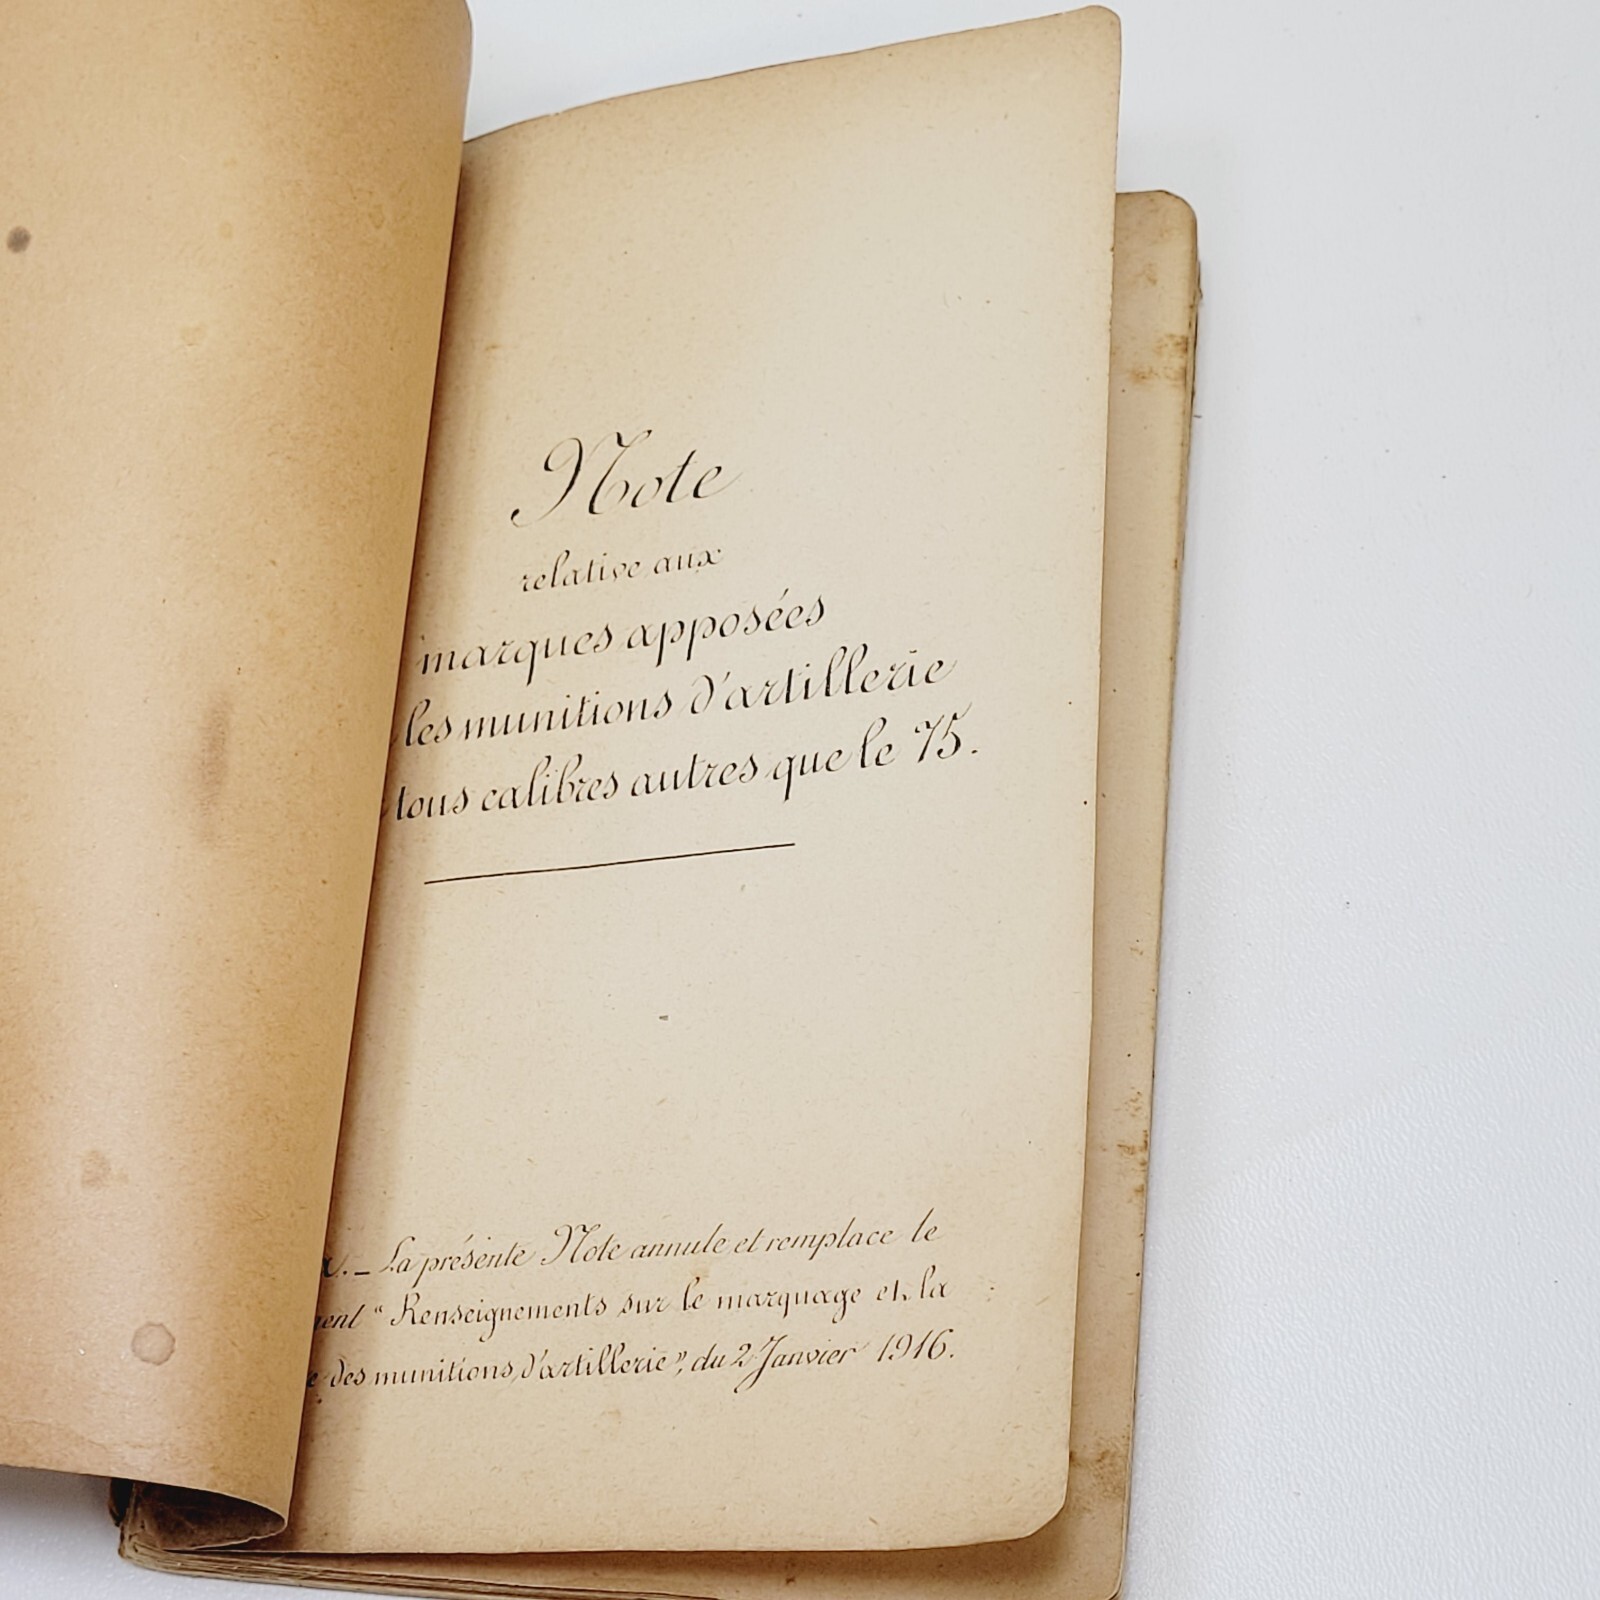 Note
relative aux
marques apposées
les munitions d'artillerie
tous calibres autres que le 75.
La présente Note annule et remplace le
"Renseignements sur le marquage et la
des munitions d'artillerie", du 2 Janvier 1916.